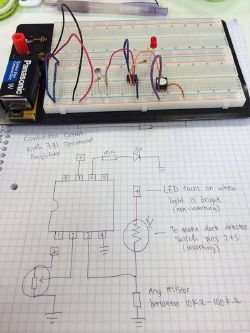 Panasonic
9V
Comparator Circuit
with 741 Operational
Amplifier
LED turns on when
light is bright
(non-inverting)
To make dark detector
switch pins 2+3
(inverting)
1 2 3 4
Any resistor
between 10kΩ-100kΩ